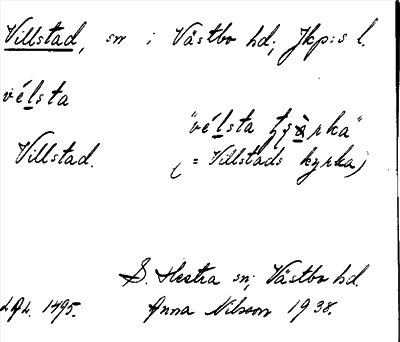 Villstad, sn i Västbo hd; Jkp:s l.
vélsta
"vélsta
Villstad.
(= Villstads kyrka)
S. Hestra sn; Västbo hd.
1495. Anna Nilsson 1938.